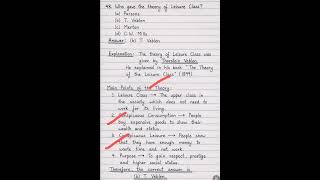 48. Who gave the theory of Leisure Class?
(a) Parsons
(b) T. Veblen
(c) Merton
(d) C.W. Mills
Answer: (b) T. Veblen
Explanation: The theory of Leisure Class was
given by Thorstein Veblen.
He explained in his book "The Theory
of the Leisure Class" (1899)
Main Points of the Theory:
1. Leisure Class → The upper class in
the society, which does not need to
work for its living.
2. Conspicuous Consumption → People
buy expensive goods to show their
wealth and status.
3. Conspicuous Leisure → People show
that they have enough money to
waste time and not work.
4. Purpose → To gain respect, prestige
and higher social status.
Therefore, the correct answer is
(b) T. Veblen.